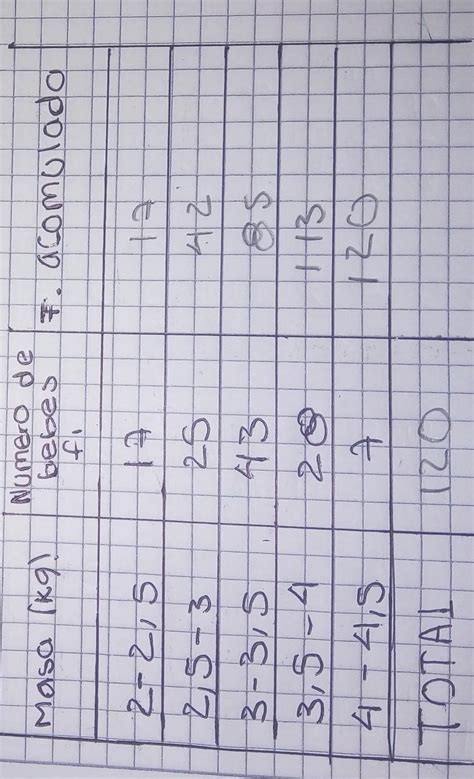 Masa (kg) Numero de bebes fi F. acomulado
2-2,5 17 17
2,5-3 25 42
3-3,5 43 85
3,5-4 28 113
4-4,5 7 120
TOTAL 120